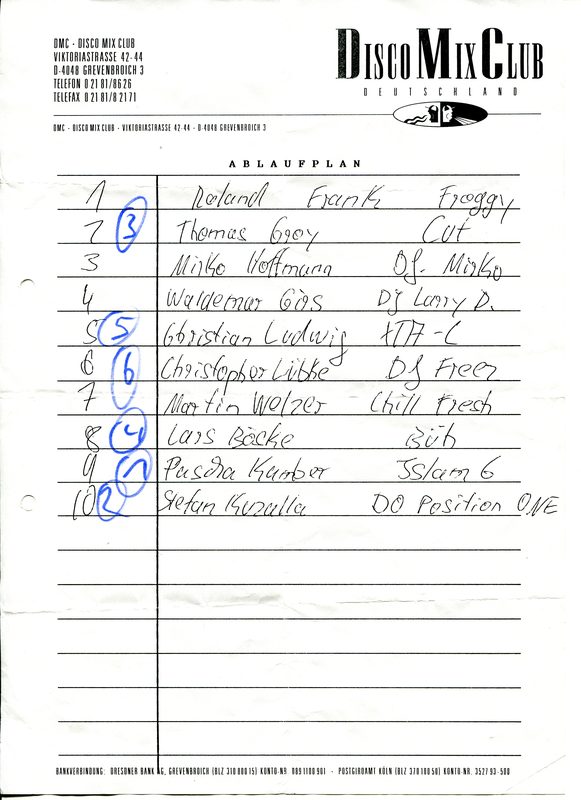 DMC · DISCO MIX CLUB
VIKTORIASTRASSE 42-44
D-4048 GREVENBROICH 3
TELEFON 0 21 81/8 6 26
TELEFAX 0 21 81/8 21 71
DISCO MIX CLUB
DEUTSCHLAND
DMC · DISCO MIX CLUB · VIKTORIASTRASSE 42-44 · D-4048 GREVENBROICH 3
ABLAUFPLAN
1 Roland Frank Froggy
2 3 Thomas Grey Cut
3 Mirko Hoffmann DJ. Mirko
4 Waldemar Görs DJ Larry D.
5 5 Christian Ludwig XTA-C
6 6 Christopher Lübke DJ Freez
7 Martin Welzer Chill Fresh
8 4 Lars Böcke Büh
9 1 Pascha Kamber Islam G
10 2 Stefan Kuzalla DO Position ONE
BANKVERBINDUNG: DRESDNER BANK AG, GREVENBROICH (BLZ 310 800 15) KONTO-NR 089 1100 901 · POSTGIROAMT KÖLN (BLZ 370 100 50) KONTO-NR. 3527 93-508